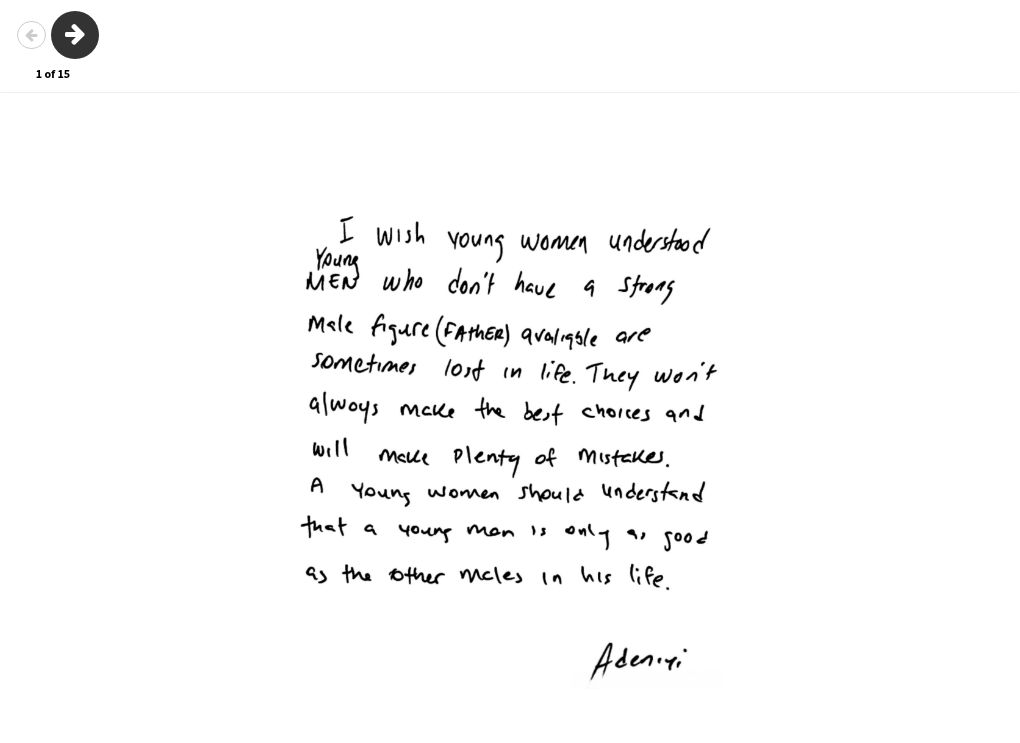 1 of 15
I wish young women understood
Young
MEN who don't have a strong
Male figure (FATHER) avaliable are
sometimes lost in life. They won't
always make the best choices and
will make plenty of mistakes.
A young women should understand
that a young man is only as good
as the other males in his life.
Adeniyi